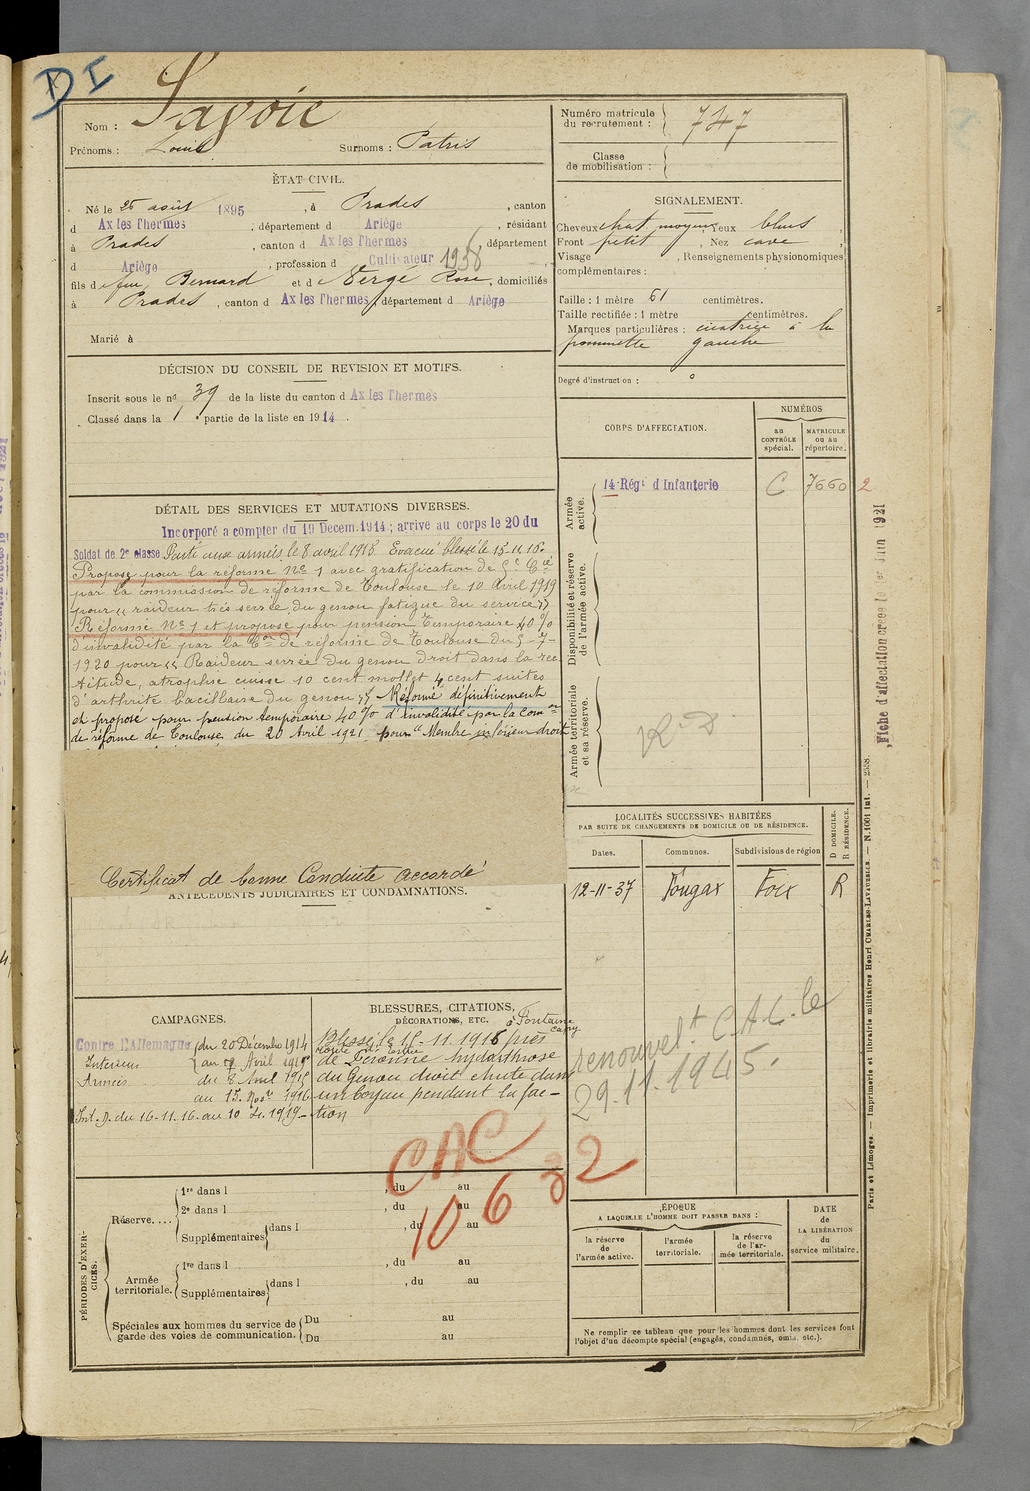 DI
Nom : Savoie
Prénoms : Louis Surnoms : Patris
ÉTAT CIVIL.
Né le 25 août 1895, à Prades, canton
d Ax les Thermes, département d Ariège, résidant
à Prades, canton d Ax les Thermes, département
d Ariège, profession d Cultivateur 1938
fils de feu Bernard et de Vergé Rose, domiciliés
à Prades, canton d Ax les Thermes, département d Ariège
Marié à
DÉCISION DU CONSEIL DE REVISION ET MOTIFS.
Inscrit sous le no 39 de la liste du canton d Ax les Thermes
Classé dans la 1 partie de la liste en 1914.
DÉTAIL DES SERVICES ET MUTATIONS DIVERSES.
Incorporé a compter du 19 Decem. 1914; arrivé au corps le 20 du
Soldat de 2e classe Parti aux armées le 8 avril 1915. Evacué blessé le 15.11.16.
Proposé pour la réforme No 1 avec gratification de 5e Cie
par la commission de réforme de Toulouse le 10 Avril 1919
pour " raideur très serrée du genou fatigue du service "
Réformé No 1 et proposé pour pension Temporaire 40%
d'invalidité par la Con de réforme de Toulouse du 5-7-
1920 pour " Raideur serrée du genou droit dans la rec
titude, atrophie cuisse 10 cent mollet 4 cent suites
d'arthrite bacillaire du genou " Réformé définitivement
et proposé pour pension temporaire 40% d'invalidité par la Comon
de réforme de Toulouse du 20 Avril 1921 pour " Membre inférieur droit
Certificat de bonne Conduite accordé
ANTÉCÉDENTS JUDICIAIRES ET CONDAMNATIONS.
CAMPAGNES.
Contre l'Allemagne du 20 Décembre 1914
Intérieur au 7 Avril 1915
Armées du 8 Avril 1915
au 15 Nove 1916
Int. D. du 16-11-16 au 10.4.1919-
BLESSURES, CITATIONS,
DÉCORATIONS, ETC. à Fontaine
capy
Blessé le 15-11.1916 près
route
de Peronne hydarthrose
du Genou droit chute dans
un boyau pendant la fac-
tion
CAC
10632
PÉRIODES D'EXER-
CICES.
Réserve....
1re dans l , du au
2e dans l , du au
Supplémentaires dans l , du au
Armée
territoriale.
1re dans l , du au
Supplémentaires dans l , du au
Spéciales aux hommes du service de
garde des voies de communication.
Du au
Du au
Numéro matricule
du recrutement : 747
Classe
de mobilisation :
SIGNALEMENT.
Cheveux chat. moyens Yeux bleus
Front petit, Nez cave,
Visage , Renseignements physionomiques
complémentaires :
Taille : 1 mètre 61 centimètres.
Taille rectifiée : 1 mètre centimètres.
Marques particulières : cicatrice à la
pommette gauche
Degré d'instruction : 0
CORPS D'AFFECTATION.
NUMÉROS
au
CONTRÔLE
spécial.
MATRICULE
ou au
répertoire.
Armée
active.
14 Régt d Infanterie C 7660 2
Disponibilité et réserve
de l'armée active.
Armée territoriale
et sa réserve.
R.D
LOCALITÉS SUCCESSIVES HABITÉES
PAR SUITE DE CHANGEMENTS DE DOMICILE OU DE RÉSIDENCE.
D DOMICILE.
R RÉSIDENCE.
Dates. Communes. Subdivisions de région
12-11-37 Fougax Foix R
renouvelt C.A.C. le
29.11.1945.
ÉPOQUE
A LAQUELLE L'HOMME DOIT PASSER DANS :
la réserve
de
l'armée active.
l'armée
territoriale.
la réserve
de l'ar-
mée territoriale.
DATE
de
LA LIBÉRATION
du
service militaire.
Ne remplir ce tableau que pour les hommes dont les services font
l'objet d'un décompte spécial (engagés, condamnés, omis, etc.).
Paris et Limoges. — Imprimerie et librairie militaires Henri CHARLES-LAVAUZELLE. — N. 1001 int. — 2358.
Fiche d'affectation créée le 1er Juin 1921